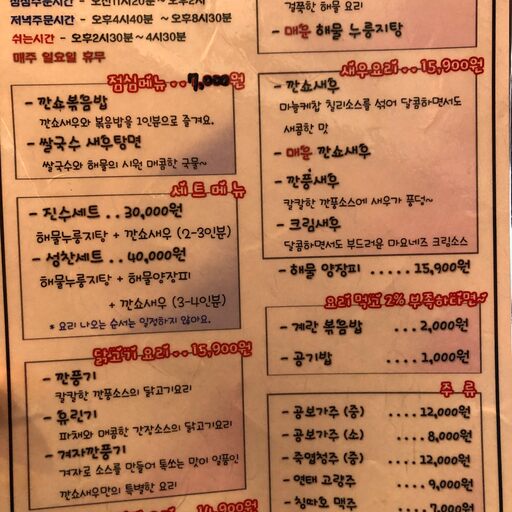 점심주문시간 - 오전11시20분~오후2시
저녁주문시간 - 오후4시40분 ~ 오후8시30분
쉬는시간 - 오후2시30분~4시30분
매주 일요일 휴무
점심메뉴 . . 7,000원
- 깐쇼볶음밥
깐쇼새우와 볶음밥을 1인분으로 즐겨요.
- 쌀국수 새우탕면
쌀국수와 해물의 시원 매콤한 국물~
세트메뉴
- 진수세트 . . 30,000원
해물누룽지탕 + 깐쇼새우 (2-3인분)
- 성찬세트 . . 40,000원
해물누룽지탕 + 해물양장피
+ 깐쇼새우 (3-4인분)
* 요리 나오는 순서는 일정하지 않아요.
닭고기 요리 . . 15,900원
- 깐풍기
칼칼한 깐풍소스의 닭고기요리
- 유린기
파채와 매콤한 간장소스의 닭고기요리
- 겨자깐풍기
겨자로 소스를 만들어 톡쏘는 맛이 일품인
깐쇼새우만의 특별한 요리
14,900원
걸쭉한 해물 요리
- 매운 해물 누룽지탕
새우요리 . . 15,900원
- 깐쇼새우
마늘케찹 칠리소스를 섞어 달콤하면서도
새콤한 맛
- 매운 깐쇼새우
- 깐풍새우
칼칼한 깐풍소스에 새우가 풍덩~
- 크림새우
달콤하면서도 부드러운 마요네즈 크림소스
- 해물 양장피 . . . . . 15,900원
요리 먹고 2% 부족하다면~
- 계란 볶음밥 . . . . 2,000원
- 공기밥 . . . . 1,000원
주 류
- 공보가주 (중) . . . . 12,000원
- 공보가주 (소) . . . . 8,000원
- 죽엽청주 (중) . . . . 12,000원
- 연태 고량주 . . . . 9,000원
- 칭따오 맥주 . . . . 7,000원